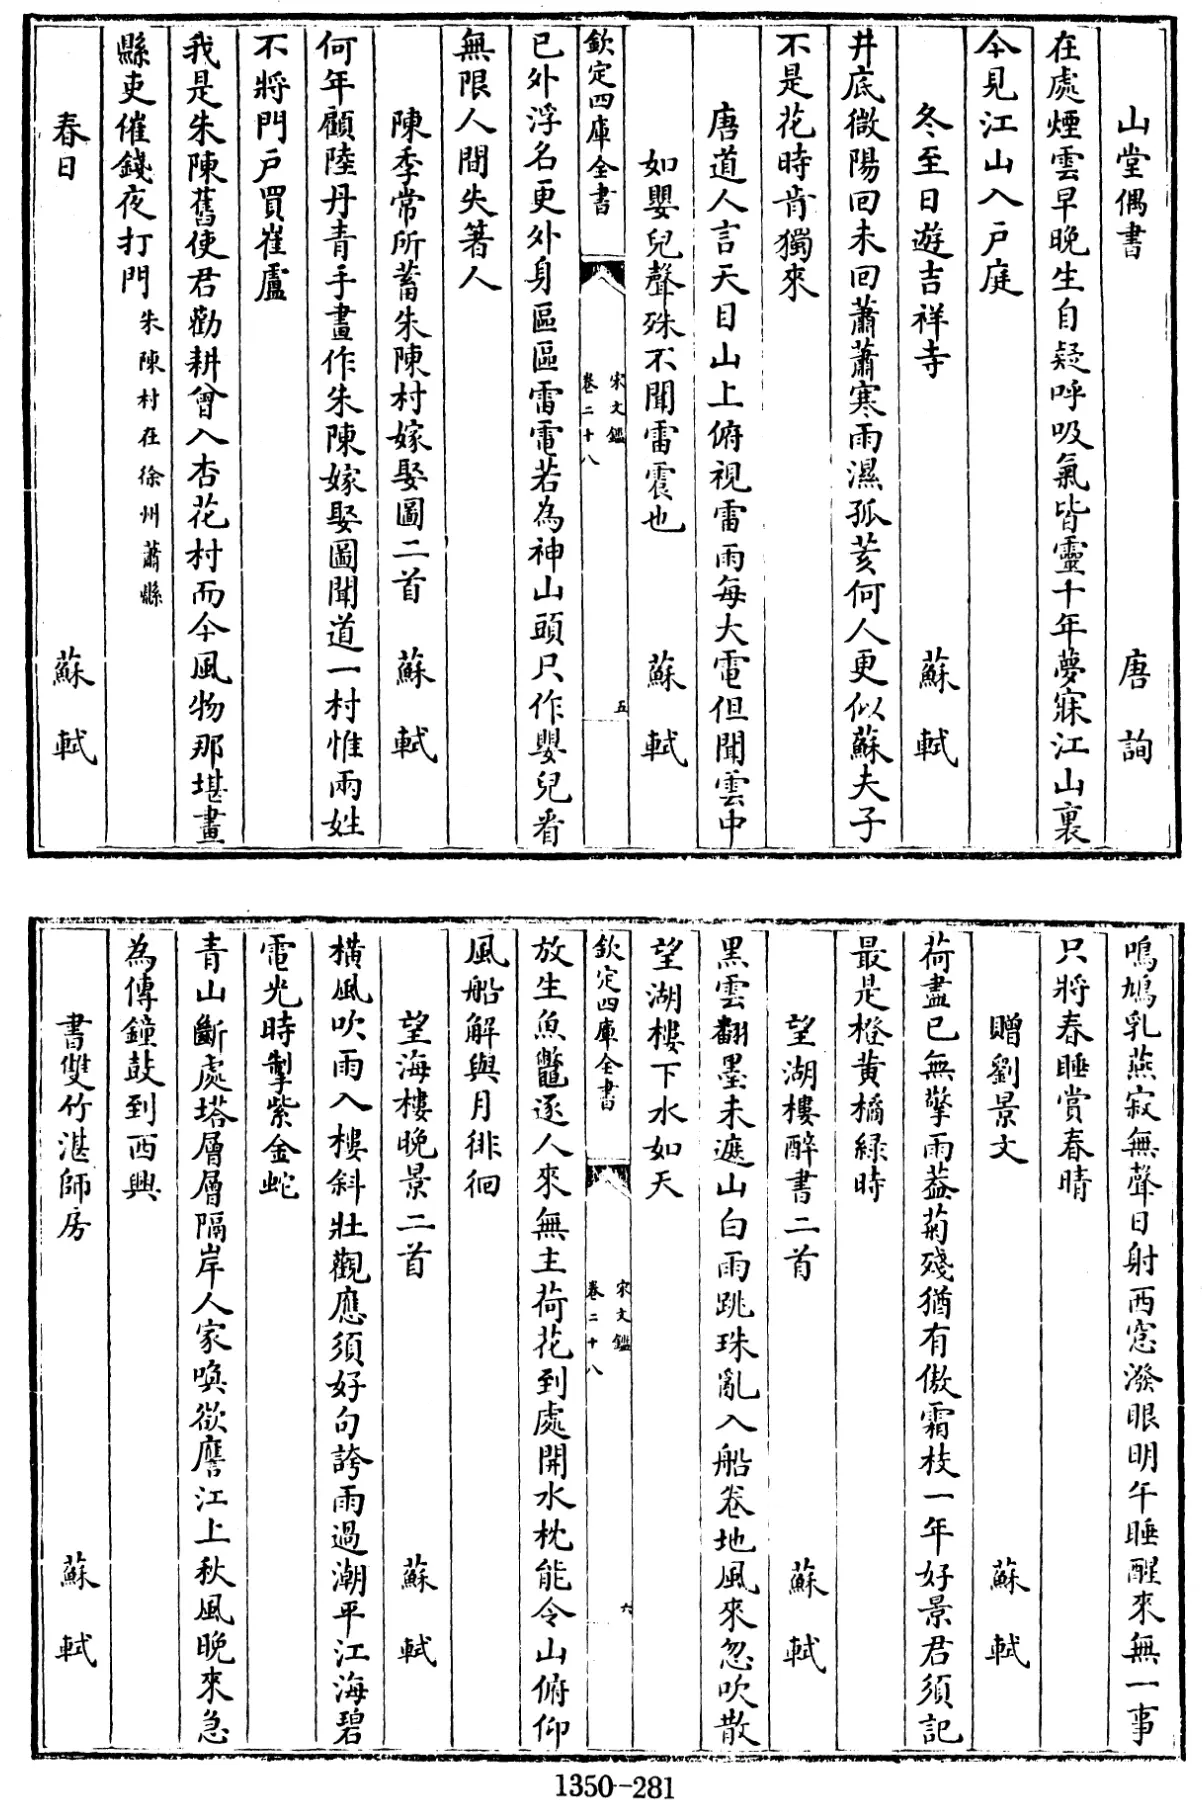 山堂偶書 唐 詢
在處煙雲早晚生自疑呼吸氣皆靈十年夢寐江山裏
今見江山入戶庭
冬至日遊吉祥寺 蘇 軾
井底微陽回未回蕭蕭寒雨濕孤荄何人更似蘇夫子
不是花時肯獨來
唐道人言天目山上俯視雷雨每大電但聞雲中
如嬰兒聲殊不聞雷震也 蘇 軾
欽定四庫全書 宋文鑑 卷二十八 五
已外浮名更外身區區雷電若為神山頭只作嬰兒看
無限人間失箸人
陳季常所蓄朱陳村嫁娶圖二首 蘇 軾
何年顧陸丹青手畫作朱陳嫁娶圖聞道一村惟兩姓
不將門戶買崔盧
我是朱陳舊使君勸耕曾入杏花村而今風物那堪畫
縣吏催錢夜打門 朱陳村在徐州蕭縣
春日 蘇 軾
鳴鳩乳燕寂無聲日射西窓潑眼明午睡醒來無一事
只將春睡賞春晴
贈劉景文 蘇 軾
荷盡已無擎雨葢菊殘猶有傲霜枝一年好景君須記
最是橙黃橘綠時
望湖樓醉書二首 蘇 軾
黑雲翻墨未遮山白雨跳珠亂入船卷地風來忽吹散
望湖樓下水如天
欽定四庫全書 宋文鑑 卷二十八 六
放生魚鼈逐人來無主荷花到處開水枕能令山俯仰
風船解與月徘徊
望海樓晚景二首 蘇 軾
橫風吹雨入樓斜壯觀應須好句誇雨過潮平江海碧
電光時掣紫金蛇
青山斷處塔層層隔岸人家喚欲譍江上秋風晚來急
為傳鐘鼓到西興
書雙竹湛師房 蘇 軾
1350-281